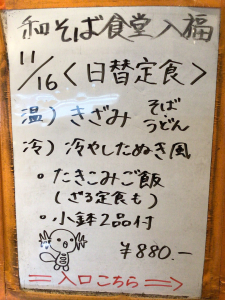 和そば食堂 入福
11/16 <日替定食>
温) きざみ そば
うどん
冷) 冷やしたぬき風
・たきこみご飯
(ざる定食も)
・小鉢2品付
¥880.-
入口こちら